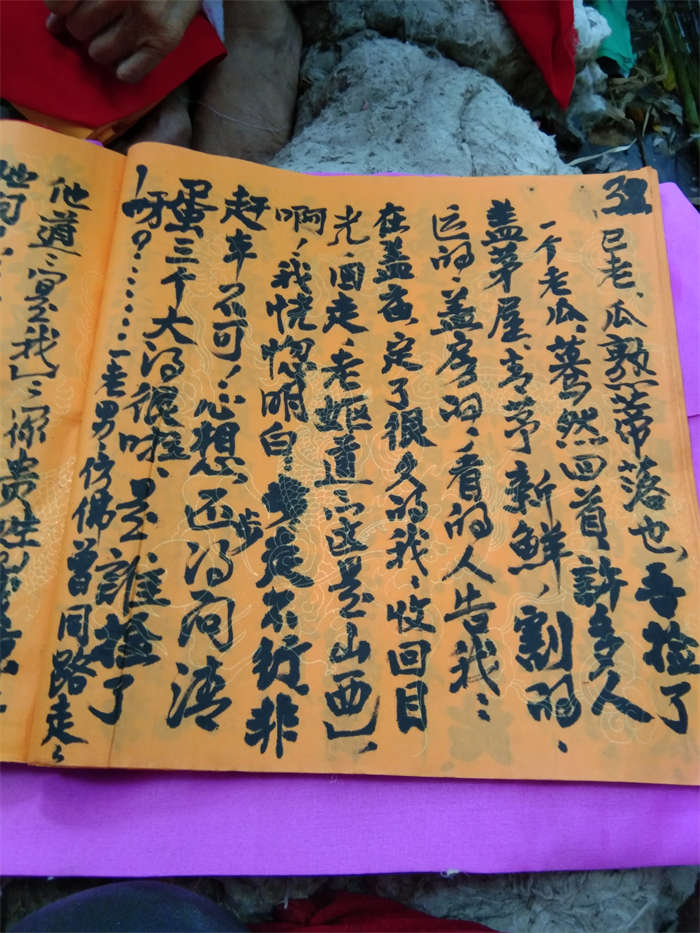 32
已老、瓜熟蒂落也、吾捡了
一个老瓜、蓦然回首許多人
盖茅屋、青茅新鮮、割的、
运的、盖房的、看的人告我:
在盖庙、定了很久的我、收回目
光、回走、老妪道:这是山西、
啊!我恍惚明白、步走不行非
赶车不可!心想还得问清
蛋三个大得很啦、是誰捡了
呀?……一老男仿佛曾同路走:
他道:是我!:你贵姓